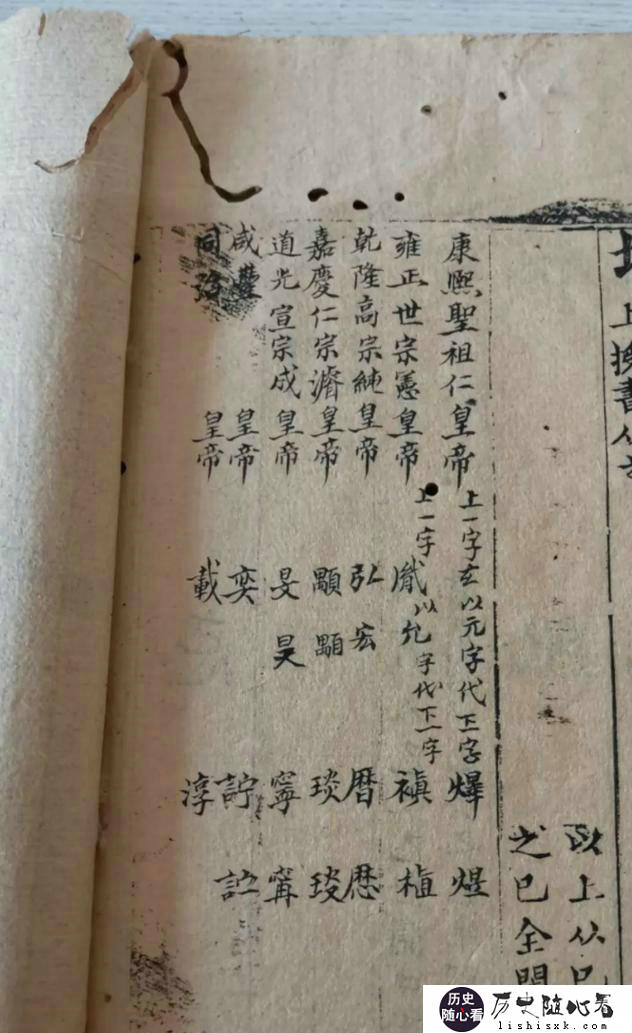 上換書从
以上从
之已全
康熙聖祖仁皇帝 上一字玄以元字代下一字 燁 煜
雍正世宗憲皇帝 上一字胤以允字代下一字 禛 楨
乾隆高宗純皇帝 弘 宏 曆 歷
嘉慶仁宗濬皇帝 顒 顒 琰 琰
道光宣宗成皇帝 旻 旲 寧 寗
咸豐皇帝 奕 詝 詝
同治皇帝 載 淳
历史随心看
历史随心看
lishisxk.com